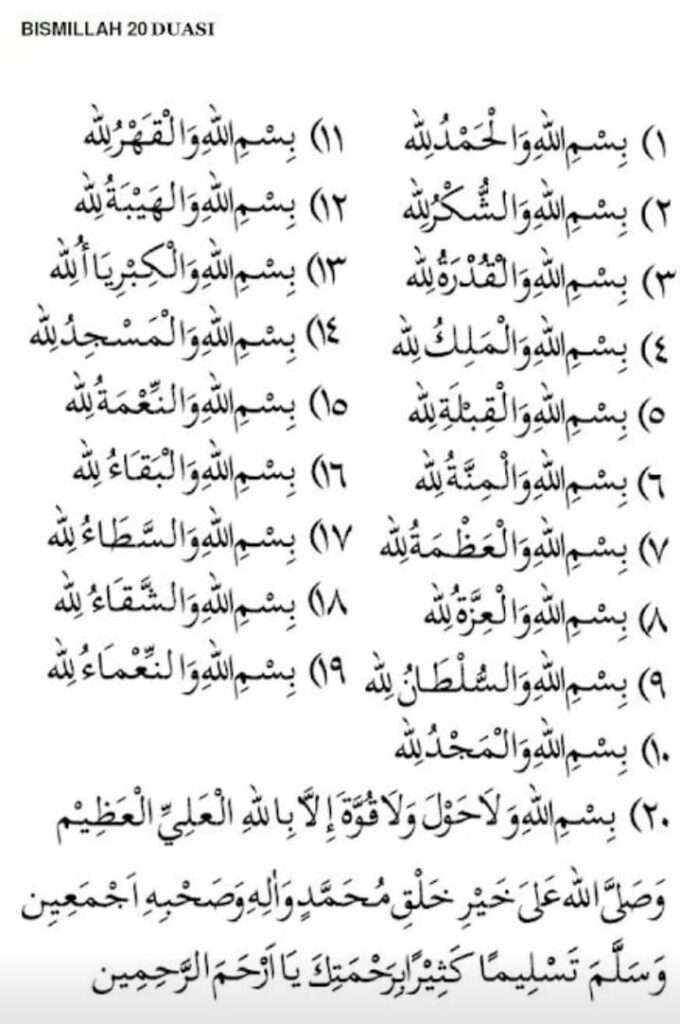 BISMILLAH 20 DUASI
١) بِسْمِ اللهِ وَالْحَمْدُ لِلّٰه
٢) بِسْمِ اللهِ وَالشُّكْرُ لِلّٰه
٣) بِسْمِ اللهِ وَالْقُدْرَةُ لِلّٰه
٤) بِسْمِ اللهِ وَالْمَلِكُ لِلّٰه
٥) بِسْمِ اللهِ وَالْقِبْلَةِ لِلّٰه
٦) بِسْمِ اللهِ وَالْمِنَّةُ لِلّٰه
٧) بِسْمِ اللهِ وَالْعَظْمَةُ لِلّٰه
٨) بِسْمِ اللهِ وَالْعِزَّةُ لِلّٰه
٩) بِسْمِ اللهِ وَالسُّلْطَانُ لِلّٰه
١٠) بِسْمِ اللهِ وَالْمَجْدُ لِلّٰه
١١) بِسْمِ اللهِ وَالْقَهْرُ لِلّٰه
١٢) بِسْمِ اللهِ وَالْهَيْبَةُ لِلّٰه
١٣) بِسْمِ اللهِ وَالْكِبْرِيَاأُ لِلّٰه
١٤) بِسْمِ اللهِ وَالْمَسْجِدُ لِلّٰه
١٥) بِسْمِ اللهِ وَالنِّعْمَةُ لِلّٰه
١٦) بِسْمِ اللهِ وَالْبَقَاءُ لِلّٰه
١٧) بِسْمِ اللهِ وَالسَّطَاءُ لِلّٰه
١٨) بِسْمِ اللهِ وَالشَّقَاءُ لِلّٰه
١٩) بِسْمِ اللهِ وَالنِّعْمَاءُ لِلّٰه
٢٠) بِسْمِ اللهِ وَلَاحَوْلَ وَلَاقُوَّةَ إِلَّا بِاللهِ الْعَلِيِّ الْعَظِيْم
وَصَلَّى الله عَلَى خَيْرِ خَلْقِ مُحَمَّدٍ وَاٰلِهِ وَصَحْبِهِ اَجْمَعِين
وَسَلَّمَ تَسْلِيمًا كَثِيْرًا بِرَحْمَتِكَ يَا اَرْحَمَ الرَّحِمِين